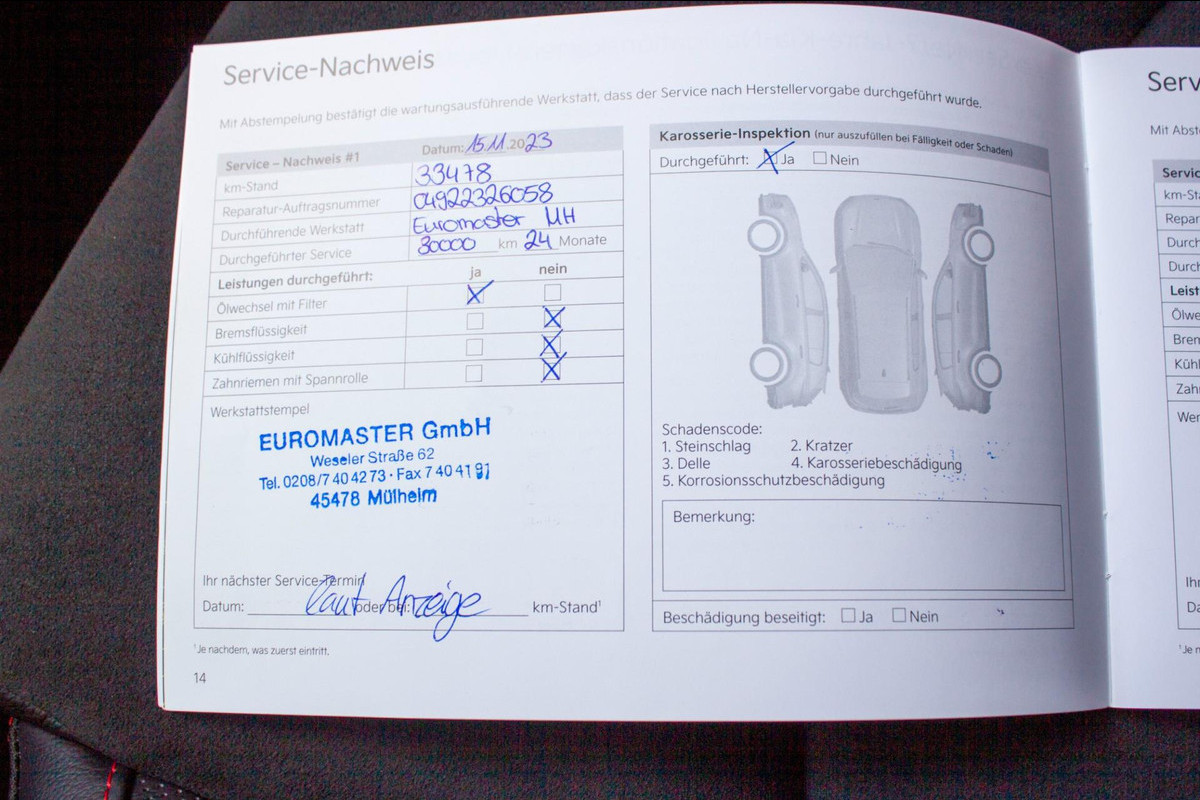 Service-Nachweis
Mit Abstempelung bestätigt die wartungsausführende Werkstatt, dass der Service nach Herstellervorgabe durchgeführt wurde.
Service – Nachweis #1 Datum: 15.11.2023
km-Stand 33478
Reparatur-Auftragsnummer 04922326058
Durchführende Werkstatt Euromaster MH
Durchgeführter Service 30000 km 24 Monate
Leistungen durchgeführt: ja nein
Ölwechsel mit Filter
Bremsflüssigkeit
Kühlflüssigkeit
Zahnriemen mit Spannrolle
Werkstattstempel
EUROMASTER GmbH
Weseler Straße 62
Tel. 0208/7 40 42 73 · Fax 7 40 41 91
45478 Mülheim
Ihr nächster Service-Termin
Datum: laut oder bei: Anzeige km-Stand¹
¹Je nachdem, was zuerst eintritt.
14
Karosserie-Inspektion (nur auszufüllen bei Fälligkeit oder Schaden)
Durchgeführt: Ja Nein
Schadenscode:
1. Steinschlag 2. Kratzer
3. Delle 4. Karosseriebeschädigung
5. Korrosionsschutzbeschädigung
Bemerkung:
Beschädigung beseitigt: Ja Nein
Serv
Mit Abst
Servic
km-St
Repar
Durch
Durch
Leist
Ölwe
Brem
Kühl
Zahn
Wer
Ihr
Da
¹Je n